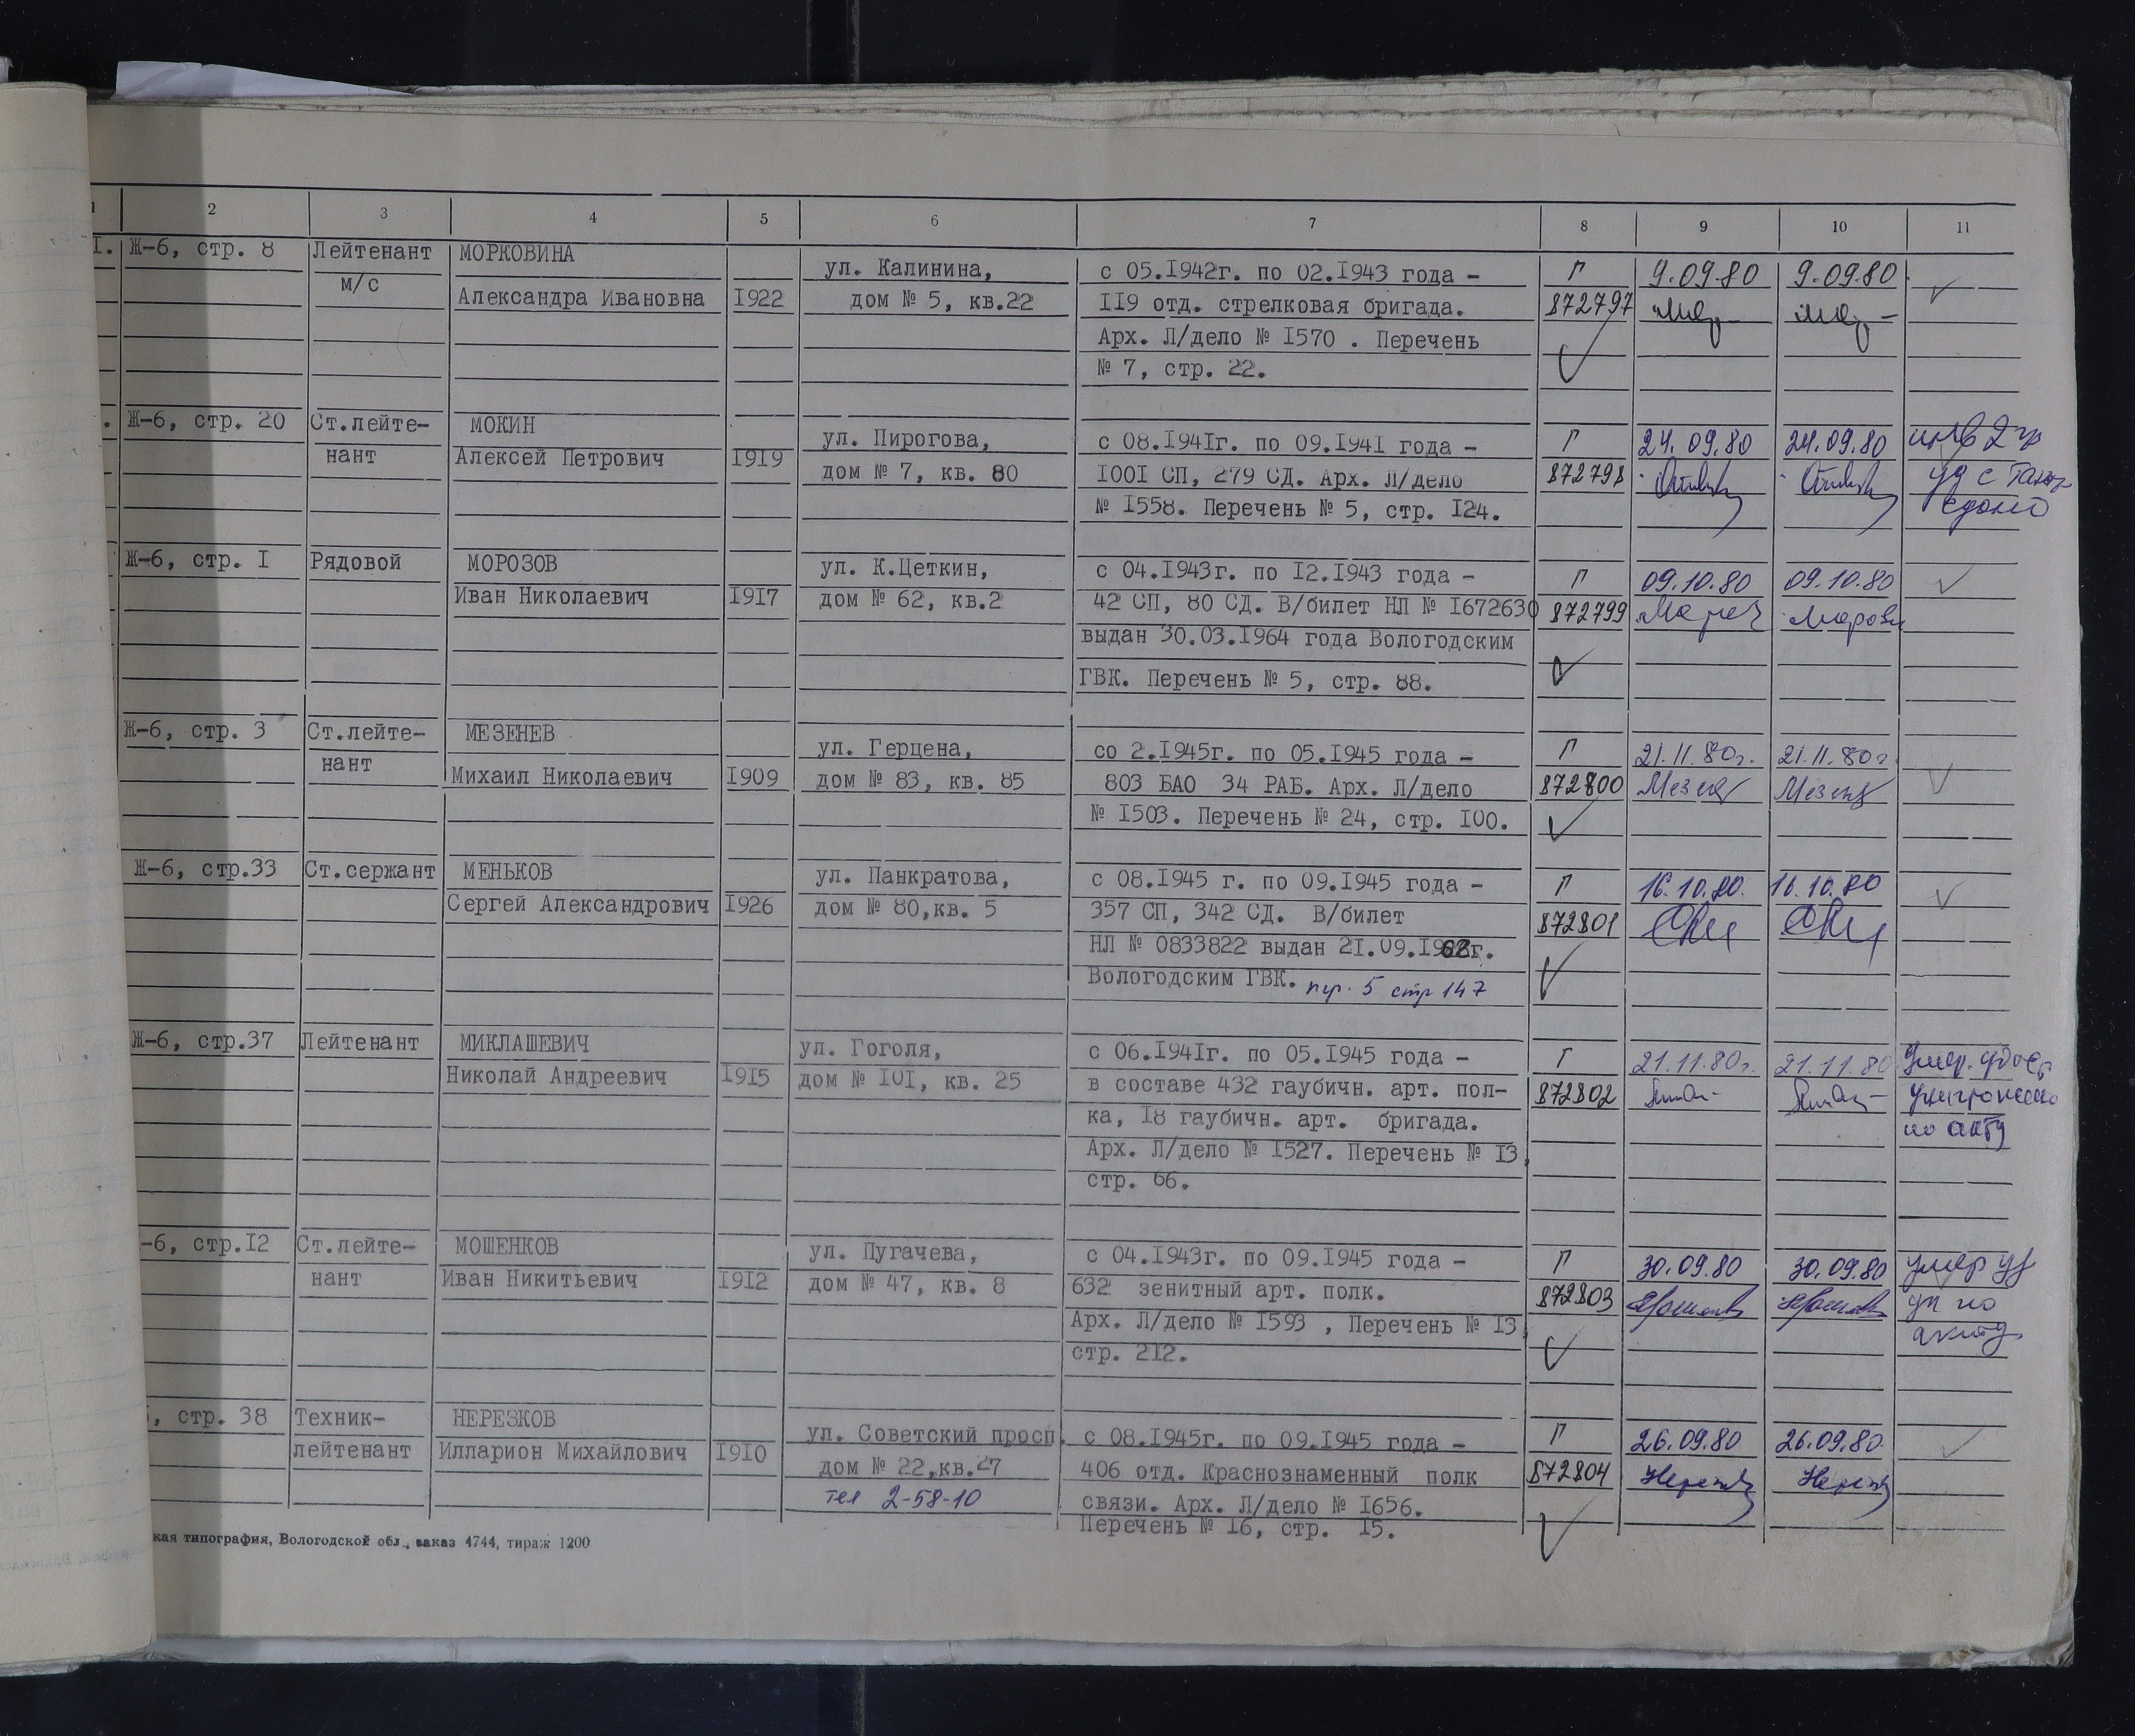 1 2 3 4 5 6 7 8 9 10 11
I. Ж-6, стр. 8 Лейтенант МОРКОВИНА
м/с Александра Ивановна I922
ул. Калинина,
дом № 5, кв.22
с 05.I942г. по 02.I943 года -
II9 отд. стрелковая бригада.
Арх. Л/дело № I570 . Перечень
№ 7, стр. 22.
Г 9.09.80 9.09.80
872797
Ж-6, стр. 20 Ст.лейте- МОКИН
нант Алексей Петрович I9I9
ул. Пирогова,
дом № 7, кв. 80
с 08.I94Iг. по 09.I94I года -
I00I СП, 279 СД. Арх. Л/дело
№ I558. Перечень № 5, стр. I24.
Г 24.09.80 24.09.80 инв 2 гр
872798 уд с
Ж-6, стр. I Рядовой МОРОЗОВ
Иван Николаевич I9I7
ул. К.Цеткин,
дом № 62, кв.2
с 04.I943г. по I2.I943 года -
42 СП, 80 СД. В/билет НЛ № I672630
выдан 30.03.I964 года Вологодским
ГВК. Перечень № 5, стр. 88.
Г 09.10.80 09.10.80
872799
Ж-6, стр. 3 Ст.лейте- МЕЗЕНЕВ
нант Михаил Николаевич I909
ул. Герцена,
дом № 83, кв. 85
со 2.I945г. по 05.I945 года -
803 БАО 34 РАБ. Арх. Л/дело
№ I503. Перечень № 24, стр. I00.
Г 21.11.80г. 21.11.80г
872800
Ж-6, стр.33 Ст.сержант МЕНЬКОВ
Сергей Александрович I926
ул. Панкратова,
дом № 80,кв. 5
с 08.I945 г. по 09.I945 года -
357 СП, 342 СД. В/билет
НЛ № 0833822 выдан 2I.09.I963г.
Вологодским ГВК. пер. 5 стр 147
Г 16.10.80. 16.10.80
872801
Ж-6, стр.37 Лейтенант МИКЛАШЕВИЧ
Николай Андреевич I9I5
ул. Гоголя,
дом № I0I, кв. 25
с 06.I94Iг. по 05.I945 года -
в составе 432 гаубичн. арт. пол-
ка, I8 гаубичн. арт. бригада.
Арх. Л/дело № I527. Перечень № I3,
стр. 66.
Г 21.11.80г. 21.11.80 Умер. удост
872802 уничтожено
по акту
-6, стр.I2 Ст.лейте- МОШЕНКОВ
нант Иван Никитьевич I9I2
ул. Пугачева,
дом № 47, кв. 8
с 04.I943г. по 09.I945 года -
632 зенитный арт. полк.
Арх. Л/дело № I593 , Перечень № I3,
стр. 2I2.
Г 30.09.80 30.09.80 умер уд
872803 ун по
акту
, стр. 38 Техник- НЕРЕЗКОВ
лейтенант Илларион Михайлович I9I0
ул. Советский просп.
дом № 22,кв.27
тел 2-58-10
с 08.I945г. по 09.I945 года -
406 отд. Краснознаменный полк
связи. Арх. Л/дело № I656.
Перечень № I6, стр. I5.
Г 26.09.80 26.09.80
872804
кая типография, Вологодской обл., заказ 4744, тираж 1200